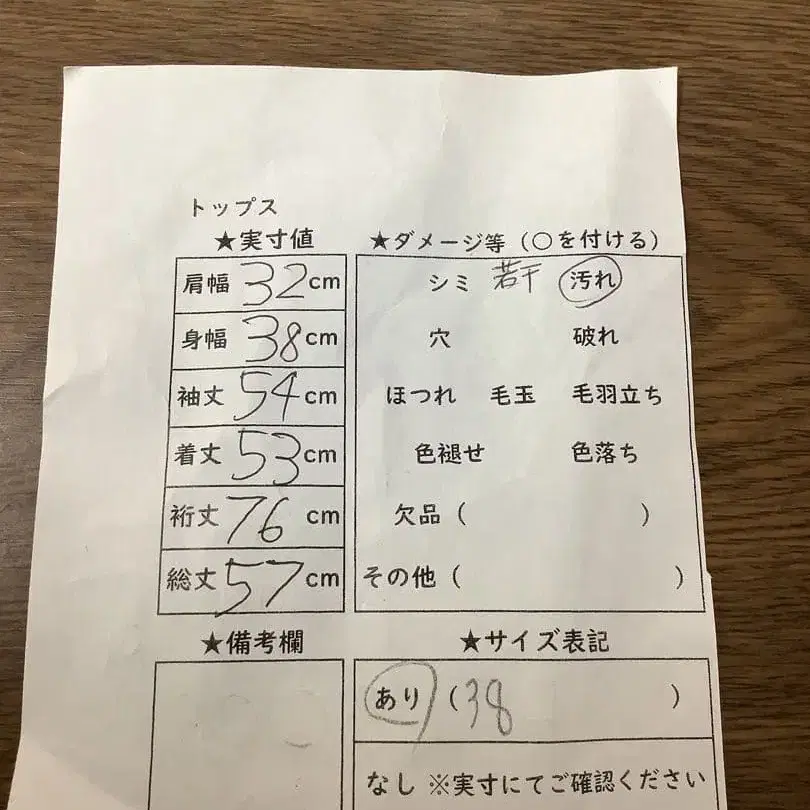 トップス
★実寸値
肩幅 32 cm
身幅 38 cm
袖丈 54 cm
着丈 53 cm
裄丈 76 cm
総丈 57 cm
★ダメージ等（○を付ける）
シミ 若干 汚れ
穴 破れ
ほつれ 毛玉 毛羽立ち
色褪せ 色落ち
欠品（ ）
その他（ ）
★備考欄
★サイズ表記
あり（38 ）
なし ※実寸にてご確認ください